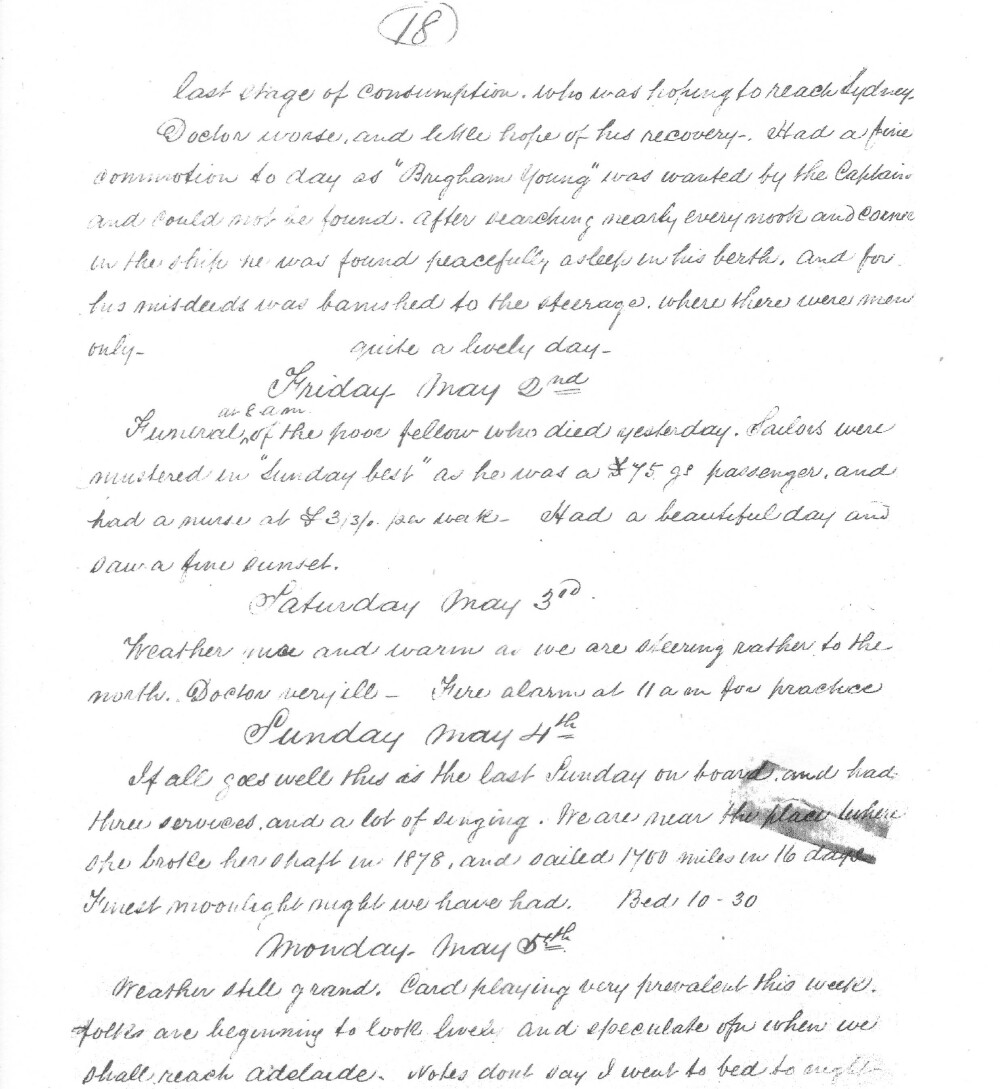 18
last stage of consumption. who was hoping to reach Sydney.
Doctor worse, and little hope of his recovery-. Had a fine
commotion to day as "Brigham Young" was wanted by the Captain
and could not be found. After searching nearly every nook and corner
in the ship he was found peacefully asleep in his berth, and for
his misdeeds was banished to the steerage. where there were men
only- quite a lively day-
Friday May 2nd
at 8 a.m.
Funeral of the poor fellow who died yesterday. Sailors were
mustered in "Sunday best" as he was a £75 gs passenger, and
had a nurse at £3/3/. per week- Had a beautiful day and
saw a fine sunset.
Saturday May 3rd
Weather nice and warm as we are steering rather to the
north. Doctor very ill - Fire alarm at 11 a m for practice
Sunday May 4th
If all goes well this is the last Sunday on board, and had
three services, and a lot of singing. We are near the place where
she broke her shaft in 1878, and sailed 1700 miles in 16 days
Finest moonlight night we have had. Bed 10-30
Monday May 5th
Weather still grand. Card playing very prevalent this week.
folks are beginning to look lively and speculate of when we
shall reach adelaide. Notes dont say I went to bed to night-